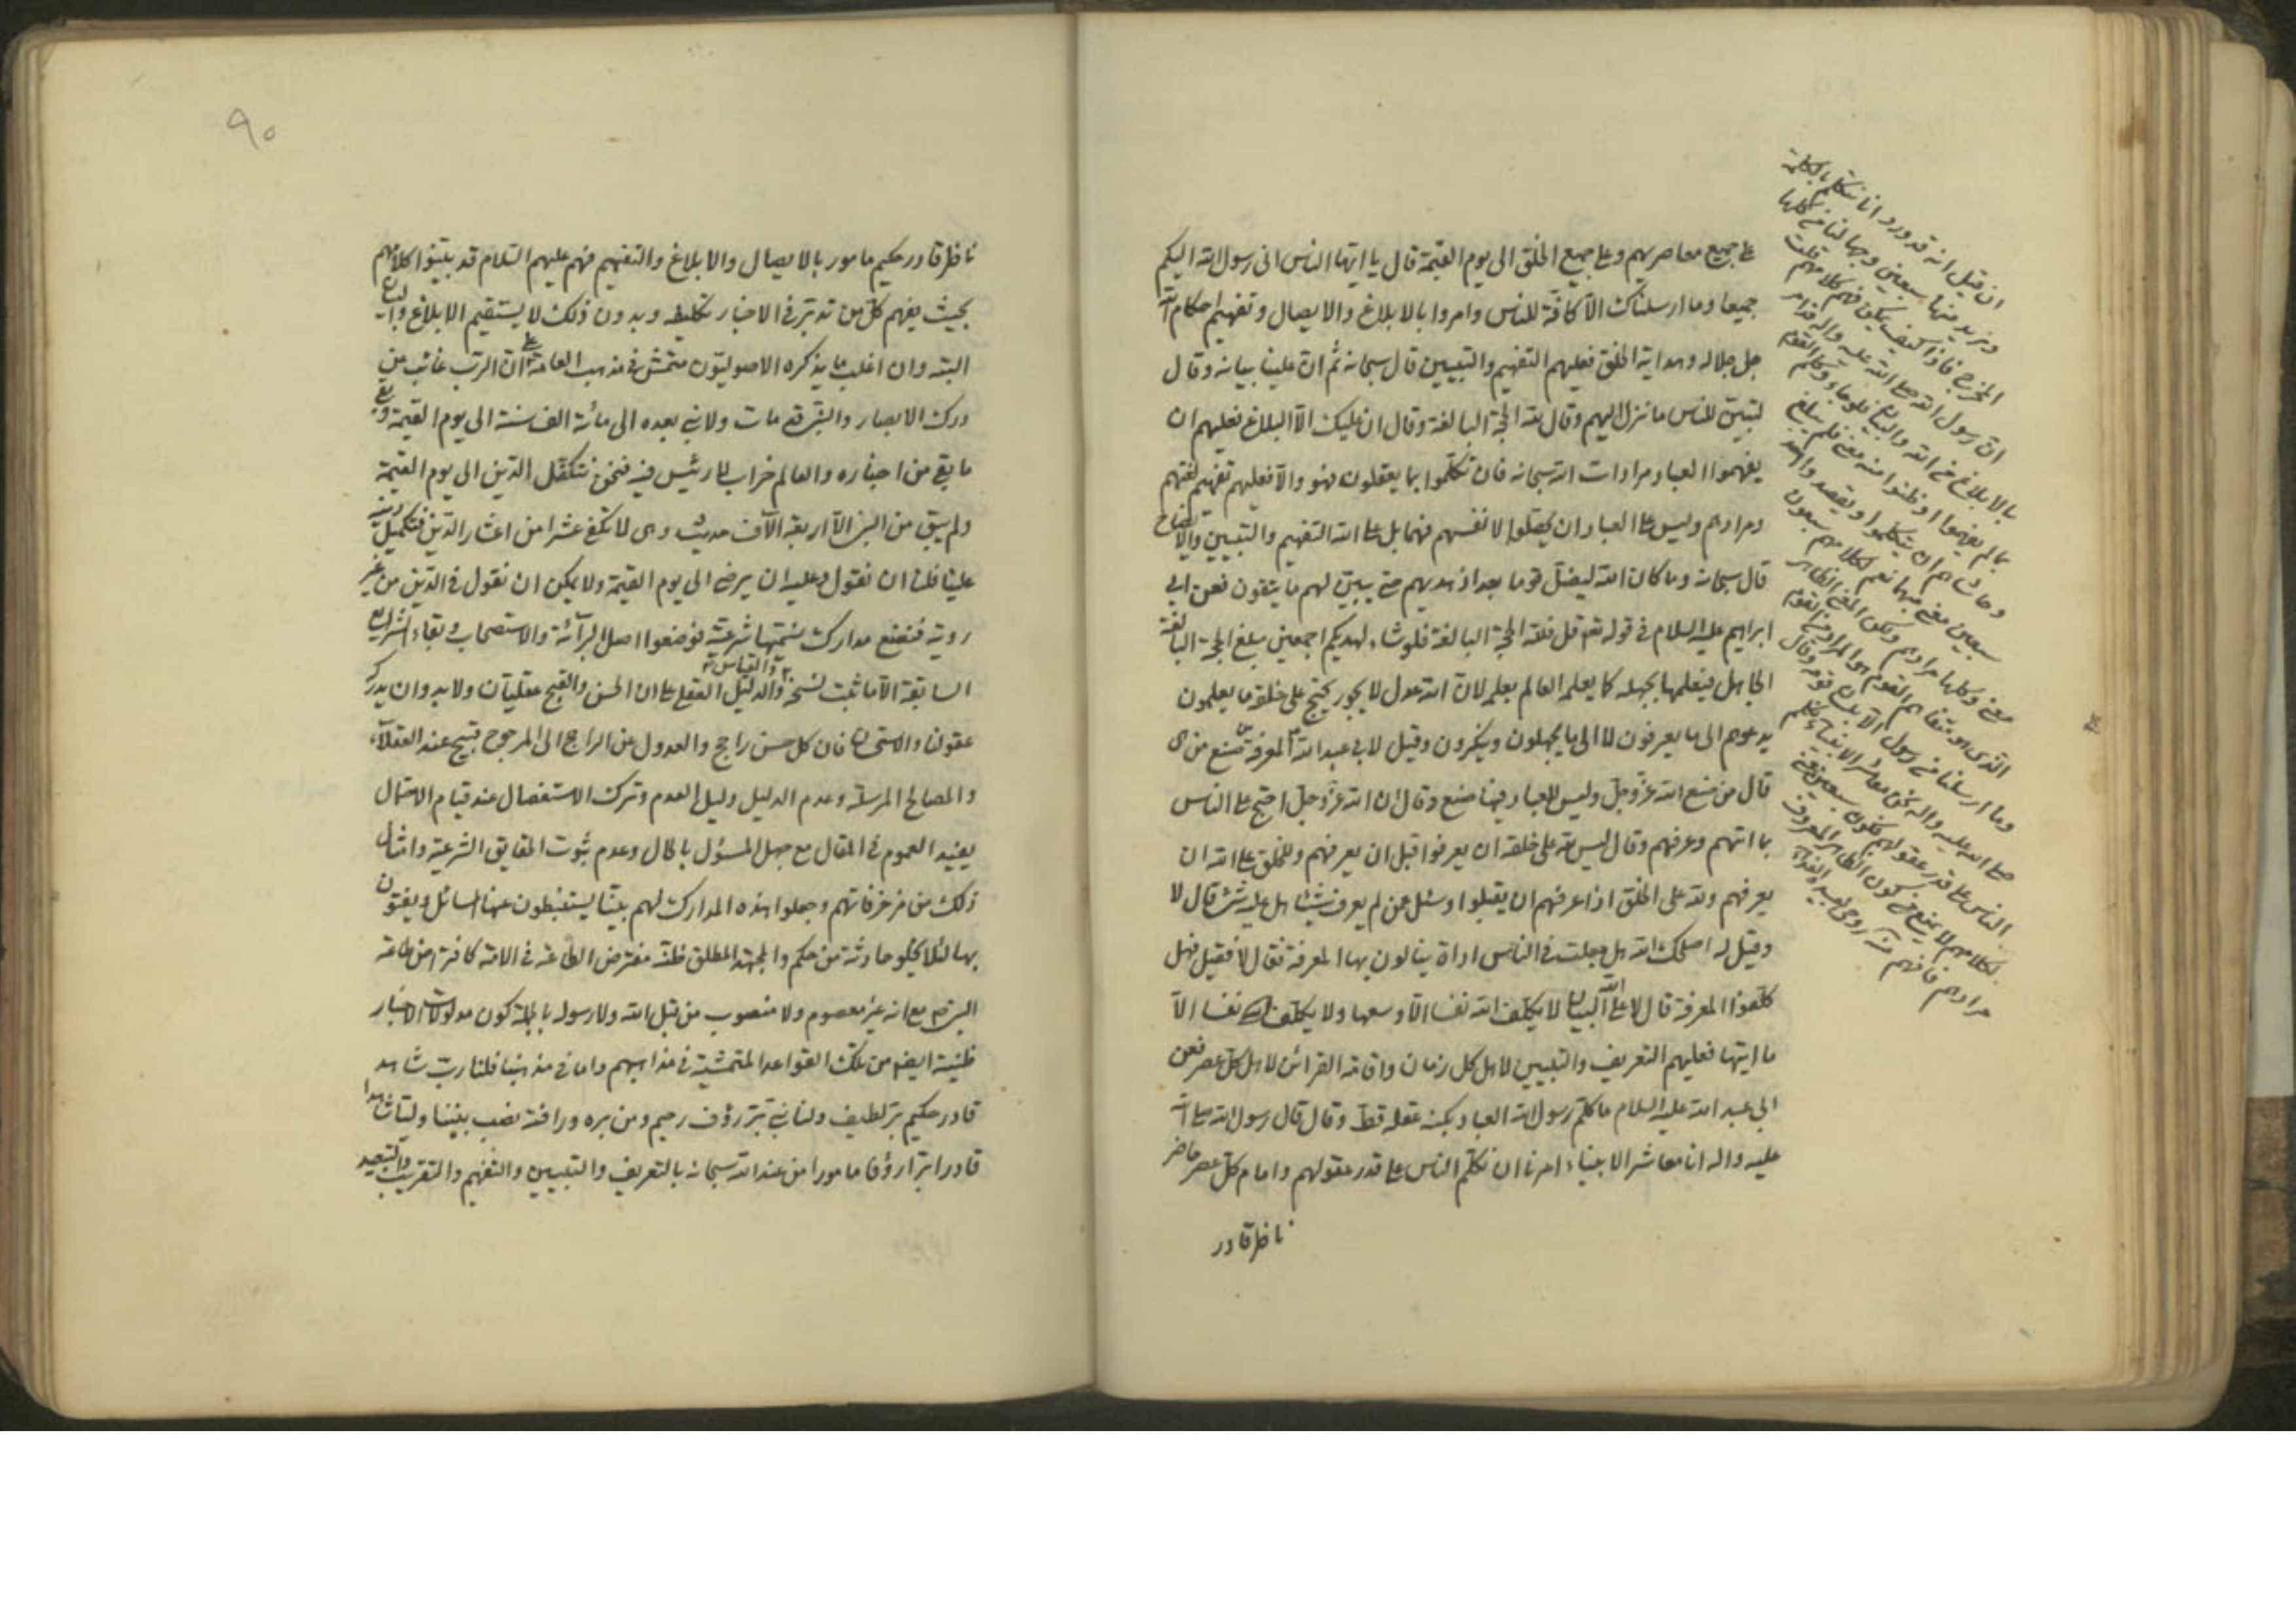 على جميع معاصريهم وعلى جميع الخلق الى يوم القيمة قال يا ايها الناس انى رسول الله اليكم
جميعا وما ارسلناك الا كافة للناس وامروا بالابلاغ والايصال وتفهيم احكام الله
جل جلاله وهداية الخلق فعليهم التفهيم والتبيين قال سبحانه ثم ان علينا بيانه وقال
لتبين للناس ما نزل اليهم وقال لله الحجة البالغة وقال ان عليك الا البلاغ فعليهم ان
يفهموا العباد مرادات الله سبحانه فان تكلموا بما يعقلون فهو والا فعليهم تفهيم لغتهم
ومرادهم وليس على العباد ان يحصلوا لانفسهم فهما بل على الله التفهيم والتبيين والايضاح
قال سبحانه وما كان الله ليضل قوما بعد اذ هديهم حتى يبين لهم ما يتقون فعن ابي
ابراهيم عليه السلام فى قوله تعو قل فلله الحجة البالغة فلو شاء لهديكم اجمعين مبلغ الحجة البالغة
الجاهل فيعلمها بجهله كما يعلم العالم بعلمه لان الله عدل لا يجور يحتج على خلقه ما يعلمون
يدعوهم الى ما يعرفون لا الى ما يجهلون وينكرون وقيل لابي عبد الله ع المعرفة صنع من هى
قال من صنع الله عز وجل وليس للعباد فيها صنع وقال ان الله عز وجل احتج على الناس
بما اتيهم وعرفهم وقال ليس لله على خلقه ان يعرفوا قبل ان يعرفهم وللخلق على الله ان
يعرفهم ولله على الخلق اذا عرفهم ان يقبلوا وسئل عمن لم يعرف شيئا هل عليه شئ قال لا
وقيل له اصلحك الله هل جعلت فى الناس اداة ينالون بها المعرفة فقال لا فقيل فهل
كلفوا المعرفة قال لا على الله البيان لا يكلف الله نفسا الا وسعها ولا يكلف الله نفسا الا
ما اتيها فعليهم التعريف والتبيين لاهل كل زمان واقامة القرائن لاهل كل عصر فعن
ابى عبد الله عليه السلام ما كلم رسول الله العباد بكنه عقله قط وقال قال رسول الله صلى الله
عليه واله انا معاشر الانبياء امرنا ان نكلم الناس على قدر عقولهم وامام كل عصر حاضر
ناظر قادر
ان قيل انه قد ورد انا نتكلم بالكلمة
ونريد منها سبعين وجها لنا من كلها
المخرج فاذا كيف يمكن فهم كلامهم قلت
ان رسول الله صلى الله عليه واله قد امر
بالابلاغ عن الله والبيان فلو جاء وكلم القوم
بما لم يفهموا او ظنوا منه معنى فلم يبلغ
وحاشاهم ان يتكلموا ويقصد واحد
سبعين معنى منها نعم لكلامهم سبعون
معنى وكلها مرادهم ولكن المعنى الظاهر
الذى هو تفاهم القوم هو المراد من القوم
وما ارسلنا من رسول الا بلسان قومه وقال
صلى الله عليه واله نحن معاشر الانبياء نكلم
الناس على قدر عقولهم فكون سبعين معنى
لكلامهم لا يمنع من كون الظاهر المعروف
مرادهم فافهم منه روحى لسيد الفداء
٩٠
ناظر قادر حكيم مامور بالايصال والابلاغ والتفهيم فهم عليهم السلام قد بينوا كلامهم
بحيث يفهم كل من تدبر فى الاخبار تكليفه وبدون ذلك لا يستقيم الابلاغ والبيان
البته وان اغلب ما يذكره الاصوليون متمش فى مذهب العامة على ان الرب غائب عن
درك الابصار والنبى قد مات ولا نبى بعده الى مائة الف سنة الى يوم القيمة
ما بقى من اخباره والعالم خراب لا رئيس فيه فنحن نتكفل الدين الى يوم القيمة
ولم يبق من النبى الا اربعة الآف حديث وهى لا تكفى عشرا من اعشار الدين فتكميل دينه
علينا فلنا ان نقول وعليه ان يرضى الى يوم القيمة ولا يمكن ان نقول فى الدين من غير
روية فنضع مدارك نسميها شرعية فوضعوا اصل البرآئة والاستصحاب وبقاء الشرايع
السابقة الا ما ثبت نسخه والقياس والدليل العقلى على ان الحسن والقبح عقليان ولابد وان يدرك
عقولنا والاستحسان فان كل حسن راجح والعدول عن الراجح الى المرجوح قبيح عند العقلاء
والمصالح المرسلة وعدم الدليل دليل العدم وترك الاستفصال عند قيام الاحتمال
يفيد العموم فى المقال مع جهل المسؤل بالحال وعدم ثبوت الحقايق الشرعية وامثال
ذلك من مزخرفاتهم وجعلوا هذه المدارك لهم بيتا يستنبطون عنها المسائل ويفتون
بها لئلا يخلو حادثة من حكم والمجتهد المطلق خلّه مفترض الطاعة فى الامة كافة من طاعة
النبى ص مع انه غير معصوم ولا منصوب من قبل الله ولا رسوله بالجملة كون مدلولات الاخبار
ظنية ايضا من تلك القواعد المتمشية فى مذاهبهم واما فى مذهبنا فلنا رب شاهد
قادر حكيم بر لطيف ولنا نبى بر رؤف رحيم ومن بره ورافته نصب بيننا وليا شاهدا
قادرا برا رؤفا مامورا من عند الله سبحانه بالتعريف والتبيين والتفهيم والتقريب والتبعيد